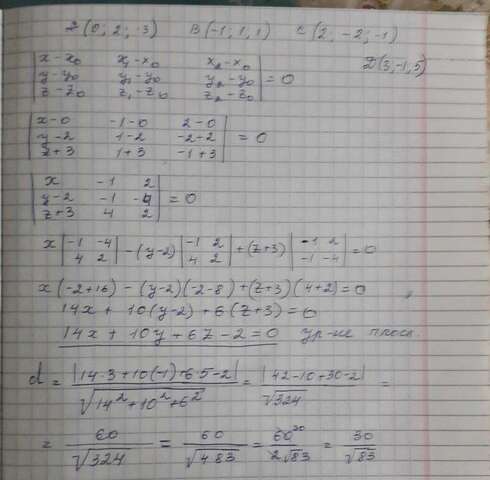 2(0,2,-3) B(-1,1,1) C(2,-2,-1)
D(3,-1,5)
| x-x₀ x₁-x₀ x₂-x₀ |
| y-y₀ y₁-y₀ y₂-y₀ | = 0
| z-z₀ z₁-z₀ z₂-z₀ |
| x-0 -1-0 2-0 |
| y-2 1-2 -2-2 | = 0
| z+3 1+3 -1+3 |
| x -1 2 |
| y-2 -1 -4 | = 0
| z+3 4 2 |
x |-1 -4; 4 2| - (y-2) |-1 2; 4 2| + (z+3) |-1 2; -1 -4| = 0
x(-2+16) - (y-2)(-2-8) + (z+3)(4+2) = 0
14x + 10(y-2) + 6(z+3) = 0
14x + 10y + 6z - 2 = 0 ур-ие плоск.
d = |14·3+10(-1)+6·5-2| / √14²+10²+6² = |42-10+30-2| / √324 =
= 60 / √324 = 60 / √483 = 60³⁰ / 2√83 = 30 / √83